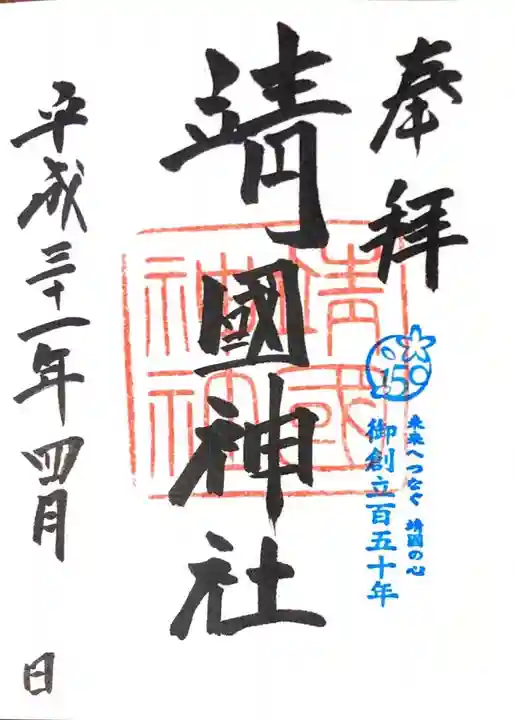 奉拝
150
未来へつなぐ 靖國の心
御創立百五十年
靖國神社
靖國神社
平成三十一年四月 日